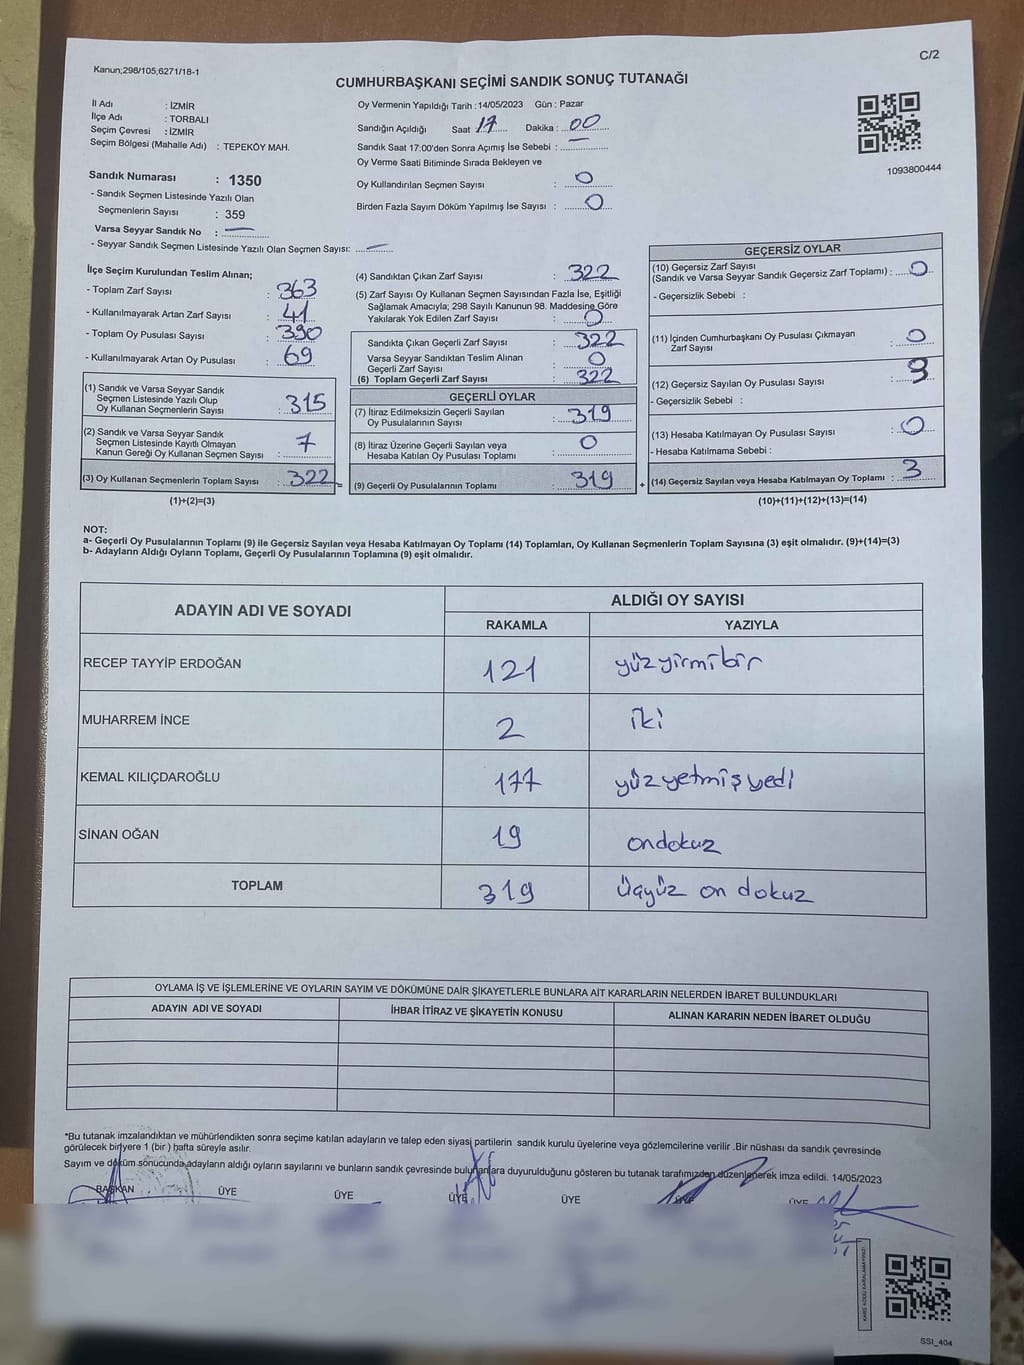 Kanun;298/105;6271/18-1
C/2
CUMHURBAŞKANI SEÇİMİ SANDIK SONUÇ TUTANAĞI
İl Adı : İZMİR
İlçe Adı : TORBALI
Seçim Çevresi : İZMİR
Seçim Bölgesi (Mahalle Adı) : TEPEKÖY MAH.
Sandık Numarası : 1350
- Sandık Seçmen Listesinde Yazılı Olan
Seçmenlerin Sayısı : 359
Varsa Seyyar Sandık No : —
- Seyyar Sandık Seçmen Listesinde Yazılı Olan Seçmen Sayısı: —
Oy Vermenin Yapıldığı Tarih : 14/05/2023 Gün : Pazar
Sandığın Açıldığı Saat 17 Dakika : 00
Sandık Saat 17:00'den Sonra Açımış İse Sebebi : —
Oy Verme Saati Bitiminde Sırada Bekleyen ve
Oy Kullandırılan Seçmen Sayısı : 0
Birden Fazla Sayım Döküm Yapılmış İse Sayısı : 0
1093800444
İlçe Seçim Kurulundan Teslim Alınan;
- Toplam Zarf Sayısı : 363
- Kullanılmayarak Artan Zarf Sayısı : 41
- Toplam Oy Pusulası Sayısı : 390
- Kullanılmayarak Artan Oy Pusulası : 69
(1) Sandık ve Varsa Seyyar Sandık
Seçmen Listesinde Yazılı Olup
Oy Kullanan Seçmenlerin Sayısı : 315
(2) Sandık ve Varsa Seyyar Sandık
Seçmen Listesinde Kayıtlı Olmayan
Kanun Gereği Oy Kullanan Seçmen Sayısı : 7
(3) Oy Kullanan Seçmenlerin Toplam Sayısı : 322
(1)+(2)=(3)
(4) Sandıktan Çıkan Zarf Sayısı : 322
(5) Zarf Sayısı Oy Kullanan Seçmen Sayısından Fazla İse, Eşitliği
Sağlamak Amacıyla; 298 Sayılı Kanunun 98. Maddesine Göre
Yakılarak Yok Edilen Zarf Sayısı : 0
Sandıkta Çıkan Geçerli Zarf Sayısı : 322
Varsa Seyyar Sandıktan Teslim Alınan
Geçerli Zarf Sayısı : 0
(6) Toplam Geçerli Zarf Sayısı : 322
GEÇERLİ OYLAR
(7) İtiraz Edilmeksizin Geçerli Sayılan
Oy Pusulalarının Sayısı : 319
(8) İtiraz Üzerine Geçerli Sayılan veya
Hesaba Katılan Oy Pusulası Toplamı : 0
(9) Geçerli Oy Pusulalarının Toplamı : 319
GEÇERSİZ OYLAR
(10) Geçersiz Zarf Sayısı
(Sandık ve Varsa Seyyar Sandık Geçersiz Zarf Toplamı) : 0
- Geçersizlik Sebebi :
(11) İçinden Cumhurbaşkanı Oy Pusulası Çıkmayan
Zarf Sayısı : 0
(12) Geçersiz Sayılan Oy Pusulası Sayısı : 3
- Geçersizlik Sebebi :
(13) Hesaba Katılmayan Oy Pusulası Sayısı : 0
- Hesaba Katılmama Sebebi :
(14) Geçersiz Sayılan veya Hesaba Katılmayan Oy Toplamı : 3
(10)+(11)+(12)+(13)=(14)
NOT:
a- Geçerli Oy Pusulalarının Toplamı (9) ile Geçersiz Sayılan veya Hesaba Katılmayan Oy Toplamı (14) Toplamları, Oy Kullanan Seçmenlerin Toplam Sayısına (3) eşit olmalıdır. (9)+(14)=(3)
b- Adayların Aldığı Oyların Toplamı, Geçerli Oy Pusulalarının Toplamına (9) eşit olmalıdır.
ADAYIN ADI VE SOYADI
ALDIĞI OY SAYISI
RAKAMLA YAZIYLA
RECEP TAYYİP ERDOĞAN 121 yüzyirmibir
MUHARREM İNCE 2 iki
KEMAL KILIÇDAROĞLU 177 yüzyetmişyedi
SİNAN OĞAN 19 ondokuz
TOPLAM 319 üçyüz on dokuz
OYLAMA İŞ VE İŞLEMLERİNE VE OYLARIN SAYIM VE DÖKÜMÜNE DAİR ŞİKAYETLERLE BUNLARA AİT KARARLARIN NELERDEN İBARET BULUNDUKLARI
ADAYIN ADI VE SOYADI İHBAR İTİRAZ VE ŞİKAYETİN KONUSU ALINAN KARARIN NEDEN İBARET OLDUĞU
*Bu tutanak imzalandıktan ve mühürlendikten sonra seçime katılan adayların ve talep eden siyasi partilerin sandık kurulu üyelerine veya gözlemcilerine verilir .Bir nüshası da sandık çevresinde
görülecek bir yere 1 (bir ) hafta süreyle asılır.
Sayım ve döküm sonucunda adayların aldığı oyların sayılarını ve bunların sandık çevresinde bulunanlara duyurulduğunu gösteren bu tutanak tarafımızdan düzenlenerek imza edildi. 14/05/2023
BAŞKAN ÜYE ÜYE ÜYE ÜYE ÜYE ÜYE
SSI_404